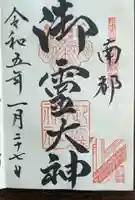 南都
御霊大神
令和五年一月二十七日